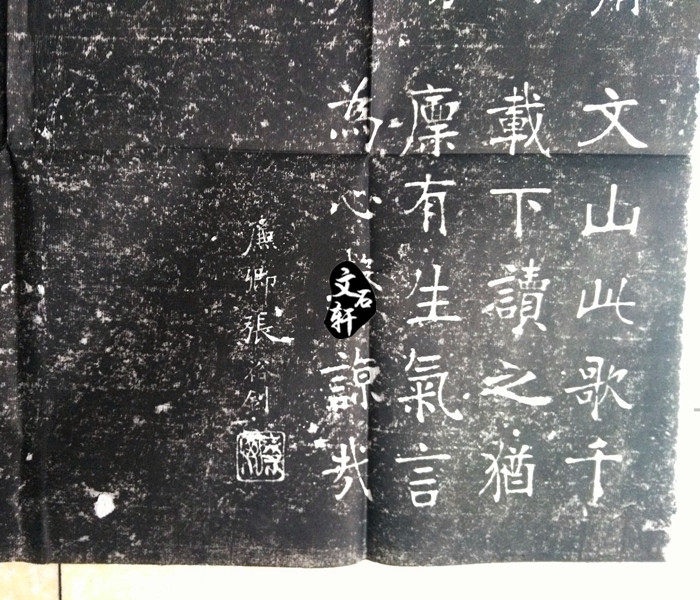 文山此歌千
載下讀之猶
廩有生氣言
為心諒哉
廉卿張裕釗
文石轩